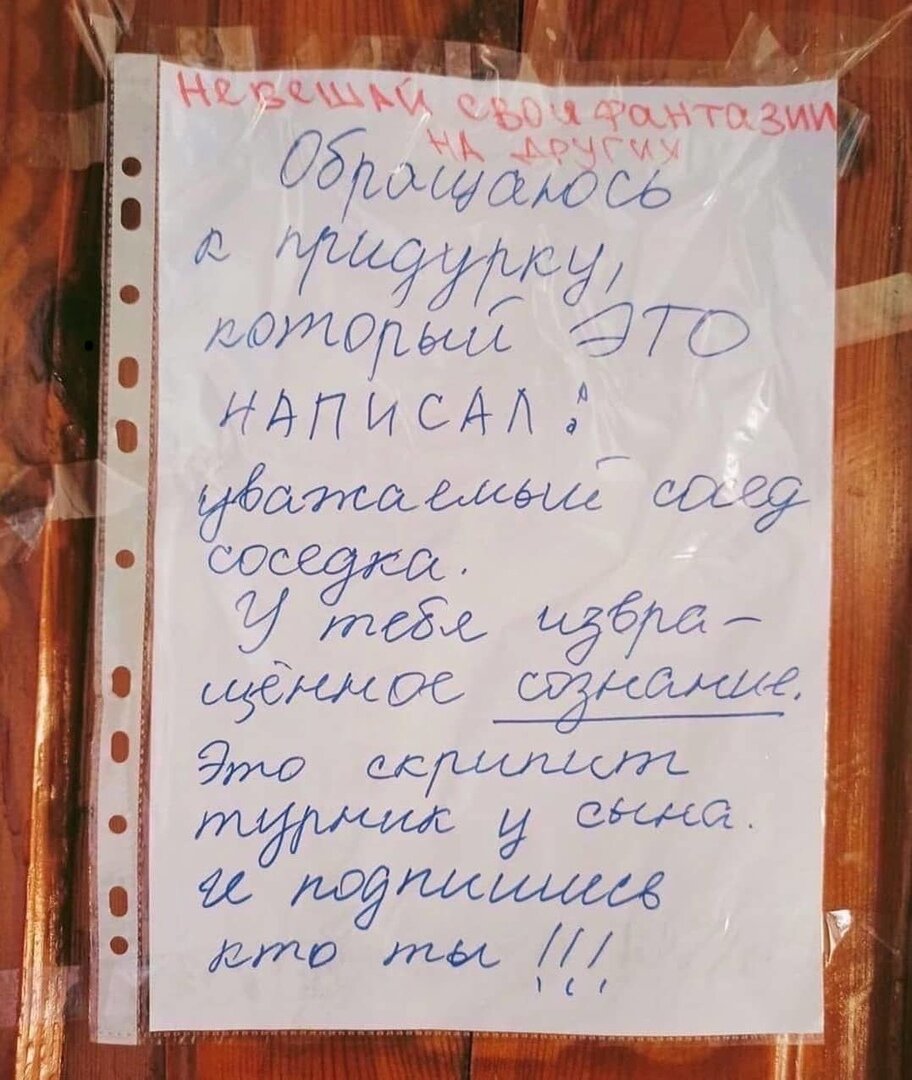 Не вешай свои фантазии
на других
Обращаюсь
к придурку,
который ЭТО
НАПИСАЛ:
уважаемый сосед
соседка.
У тебя извра-
щённое сознание.
Это скрипит
турник у сына.
и подпишись
кто ты!!!